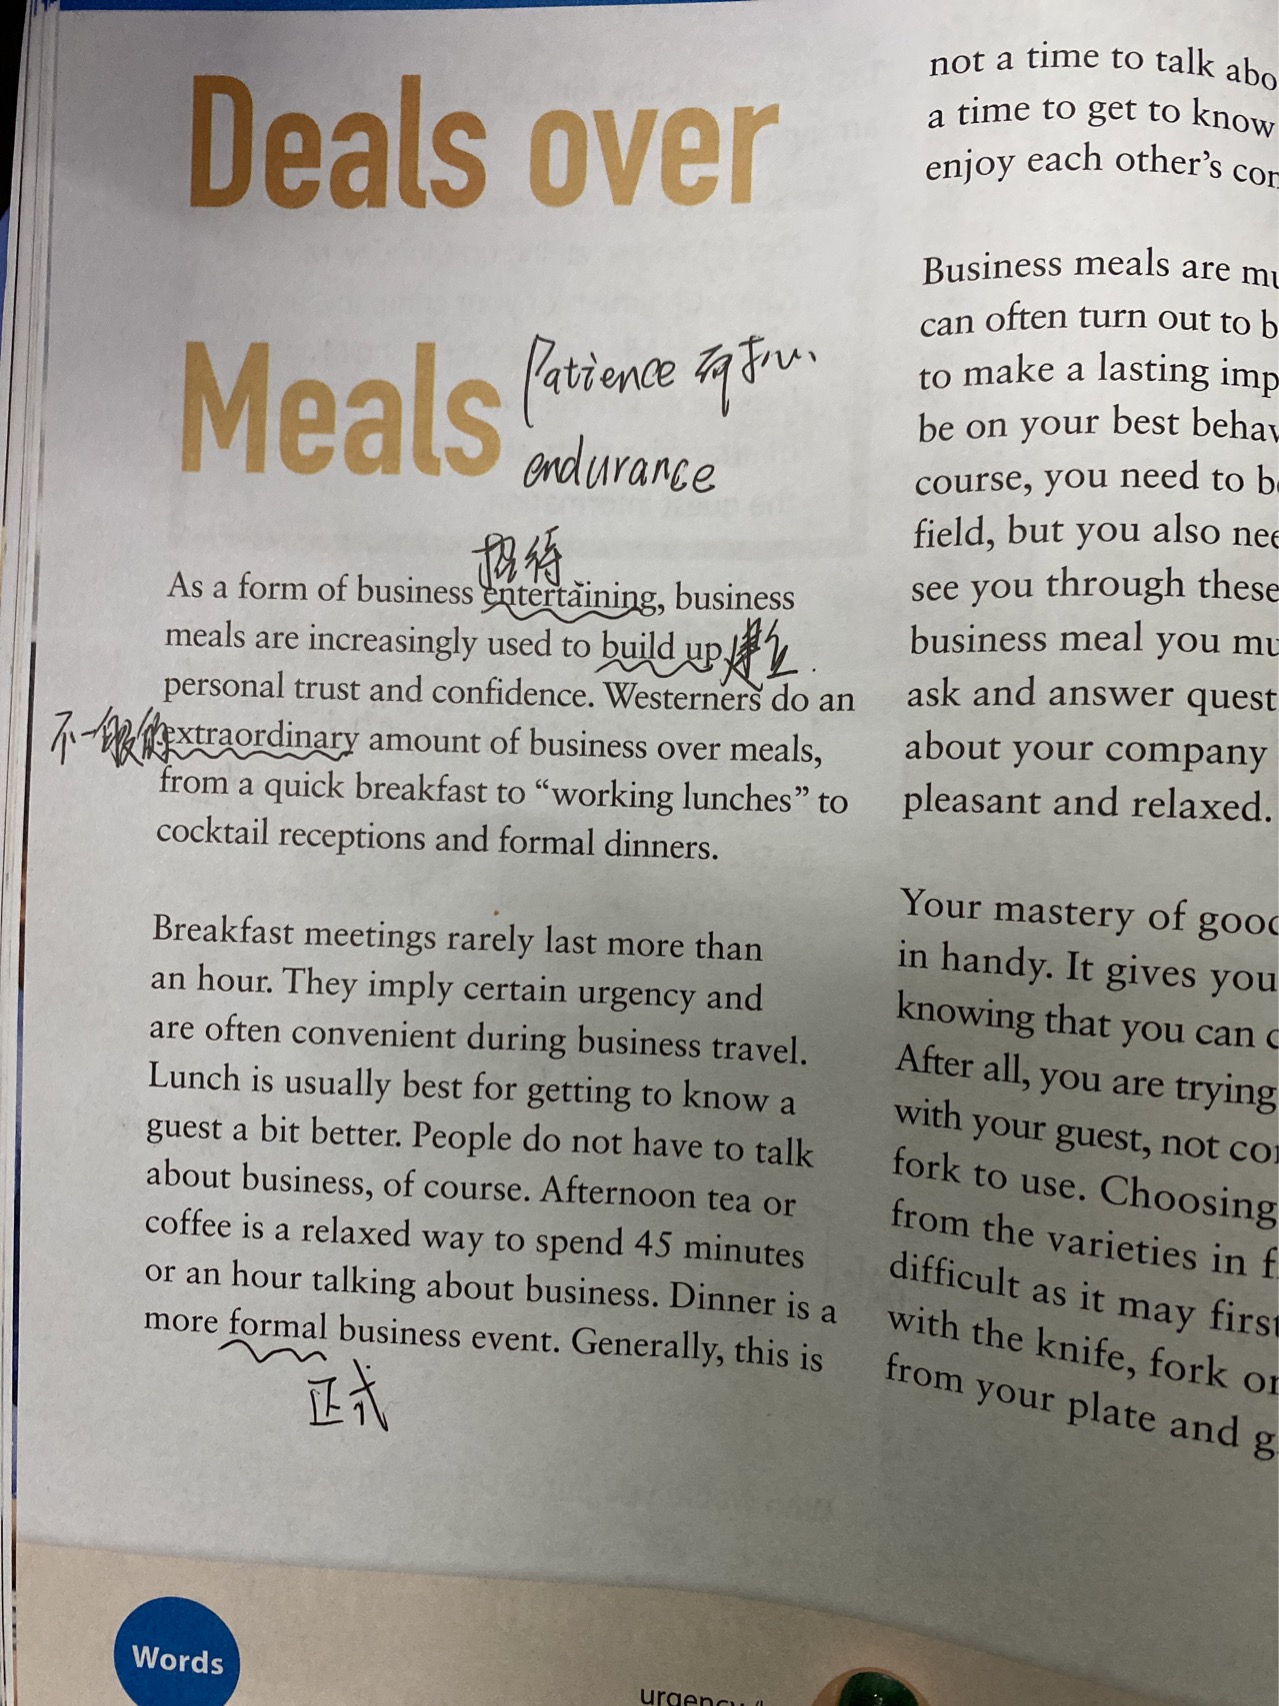 Deals over
Meals
Patience 耐心
endurance
招待
As a form of business entertaining, business
meals are increasingly used to build up 建立
personal trust and confidence. Westerners do an
不一般的 extraordinary amount of business over meals,
from a quick breakfast to “working lunches” to
cocktail receptions and formal dinners.
Breakfast meetings rarely last more than
an hour. They imply certain urgency and
are often convenient during business travel.
Lunch is usually best for getting to know a
guest a bit better. People do not have to talk
about business, of course. Afternoon tea or
coffee is a relaxed way to spend 45 minutes
or an hour talking about business. Dinner is a
more formal business event. Generally, this is
正式
not a time to talk abo
a time to get to know
enjoy each other’s con
Business meals are mu
can often turn out to b
to make a lasting imp
be on your best behav
course, you need to be
field, but you also nee
see you through these
business meal you mu
ask and answer quest
about your company
pleasant and relaxed.
Your mastery of good
in handy. It gives you
knowing that you can c
After all, you are trying
with your guest, not con
fork to use. Choosing
from the varieties in f
difficult as it may first
with the knife, fork or
from your plate and g
Words
urgency